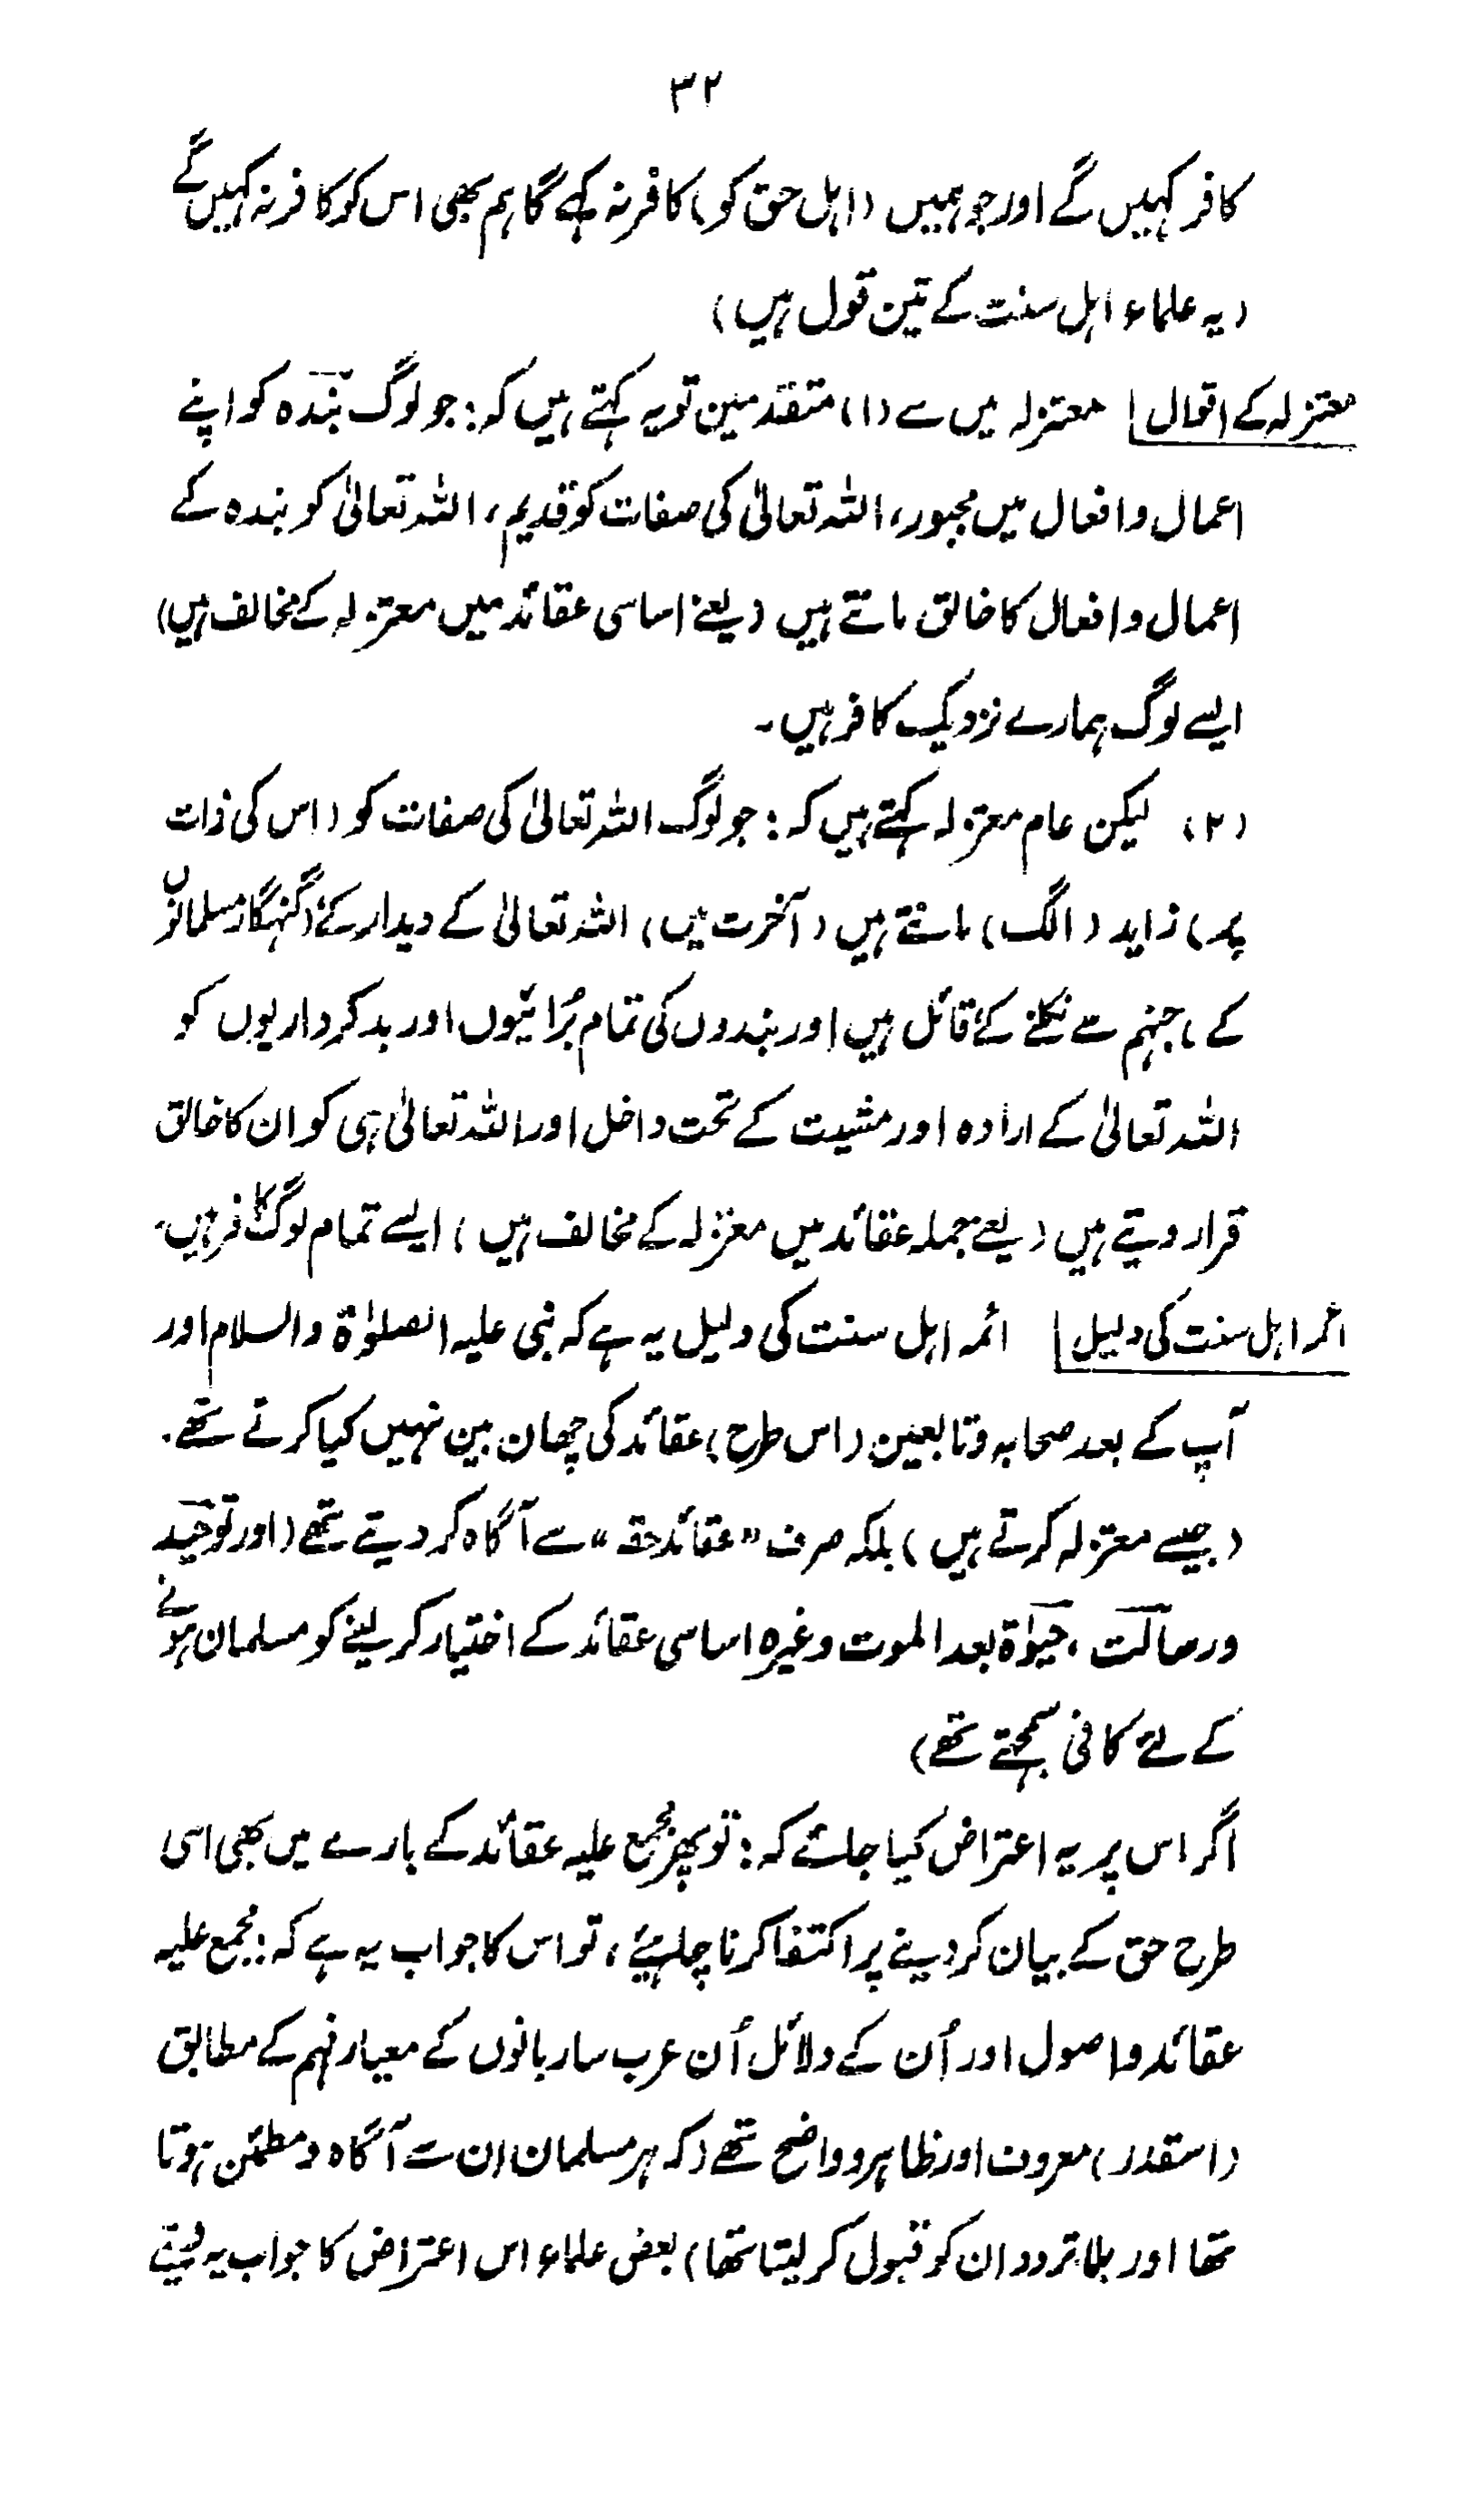 ۳۲
کافر کہیں گے اور جو ہمیں (اہل حق کو) کافر نہ کہے گا ہم بھی اس کو کافر نہ کہیں گے
(یہ علماء اہل سنت کے تین قول ہیں)
معتزلہ کے اقوال | معتزلہ میں سے (۱) متقدمین تو یہ کہتے ہیں کہ: جو لوگ بندہ کو اپنے
اعمال و افعال میں مجبور، اللہ تعالیٰ کی صفات کو قدیم، اللہ تعالیٰ کو بندہ کے
اعمال و افعال کا خالق مانتے ہیں (یعنے اساسی عقائد میں معتزلہ کے مخالف ہیں)
ایسے لوگ ہمارے نزدیک کافر ہیں۔
(۲) لیکن عام معتزلہ کہتے ہیں کہ: جو لوگ اللہ تعالیٰ کی صفات کو (اس کی ذات
پر) زاید (الگ) مانتے ہیں (آخرت میں) اللہ تعالیٰ کے دیدار کے (گنہگار مسلمانوں
کے) جہنم سے نکلنے کے قائل ہیں اور بندوں کی تمام بُرائیوں اور بدکرداریوں کو
اللہ تعالیٰ کے ارادہ اور مشیت کے تحت داخل اور اللہ تعالیٰ ہی کو ان کا خالق
قرار دیتے ہیں (یعنے جملہ عقائد میں معتزلہ کے مخالف ہیں) ایسے تمام لوگ کافر ہیں۔
ائمہ اہل سنت کی دلیل | ائمہ اہل سنت کی دلیل یہ ہے کہ نبی علیہ الصلوٰۃ والسلام اور
آپ کے بعد صحابہ و تابعین (اس طرح) عقائد کی چھان بین نہیں کیا کرتے تھے۔
(جیسے معتزلہ کرتے ہیں) بلکہ صرف "عقائد حقہ" سے آگاہ کر دیتے تھے (اور توحید
و رسالت، حیوٰۃ بعد الموت وغیرہ اساسی عقائد کے اختیار کر لینے کو مسلمان ہونے
کے لئے کافی سمجھتے تھے)
اگر اس پر یہ اعتراض کیا جائے کہ: تو پھر مجمع علیہ عقائد کے بارے میں بھی اسی
طرح حق کے بیان کر دینے پر اکتفا کرنا چاہئے، تو اس کا جواب یہ ہے کہ: مجمع علیہ
عقائد و اصول اور اُن کے دلائل اُن عرب ساربانوں کے معیار فہم کے مطابق
(اسقدر) معروف اور ظاہر و واضح تھے (کہ ہر مسلمان ان سے آگاہ و مطمئن ہوتا
تھا اور بلا تردد ان کو قبول کر لیتا تھا) بعض علماء اس اعتراض کا جواب یہ دیتے